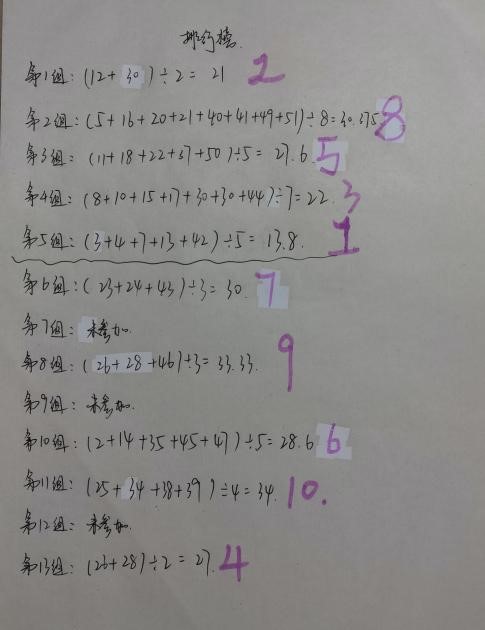 排行榜.
第1组: (12+30)÷2=21 2
第2组: (5+16+20+21+40+41+49+51)÷8=30.375 8
第3组: (11+18+22+37+50)÷5=27.6 5
第4组: (8+10+15+17+30+30+44)÷7=22. 3
第5组: (3+4+7+13+42)÷5=13.8. 1
第6组: (23+24+43)÷3=30. 7
第7组: 未参加.
第8组: (26+28+46)÷3=33.33. 9
第9组: 未参加.
第10组: (2+14+35+45+47)÷5=28.6 6
第11组: (25+34+38+39)÷4=34. 10.
第12组: 未参加.
第13组: (26+28)÷2=27. 4